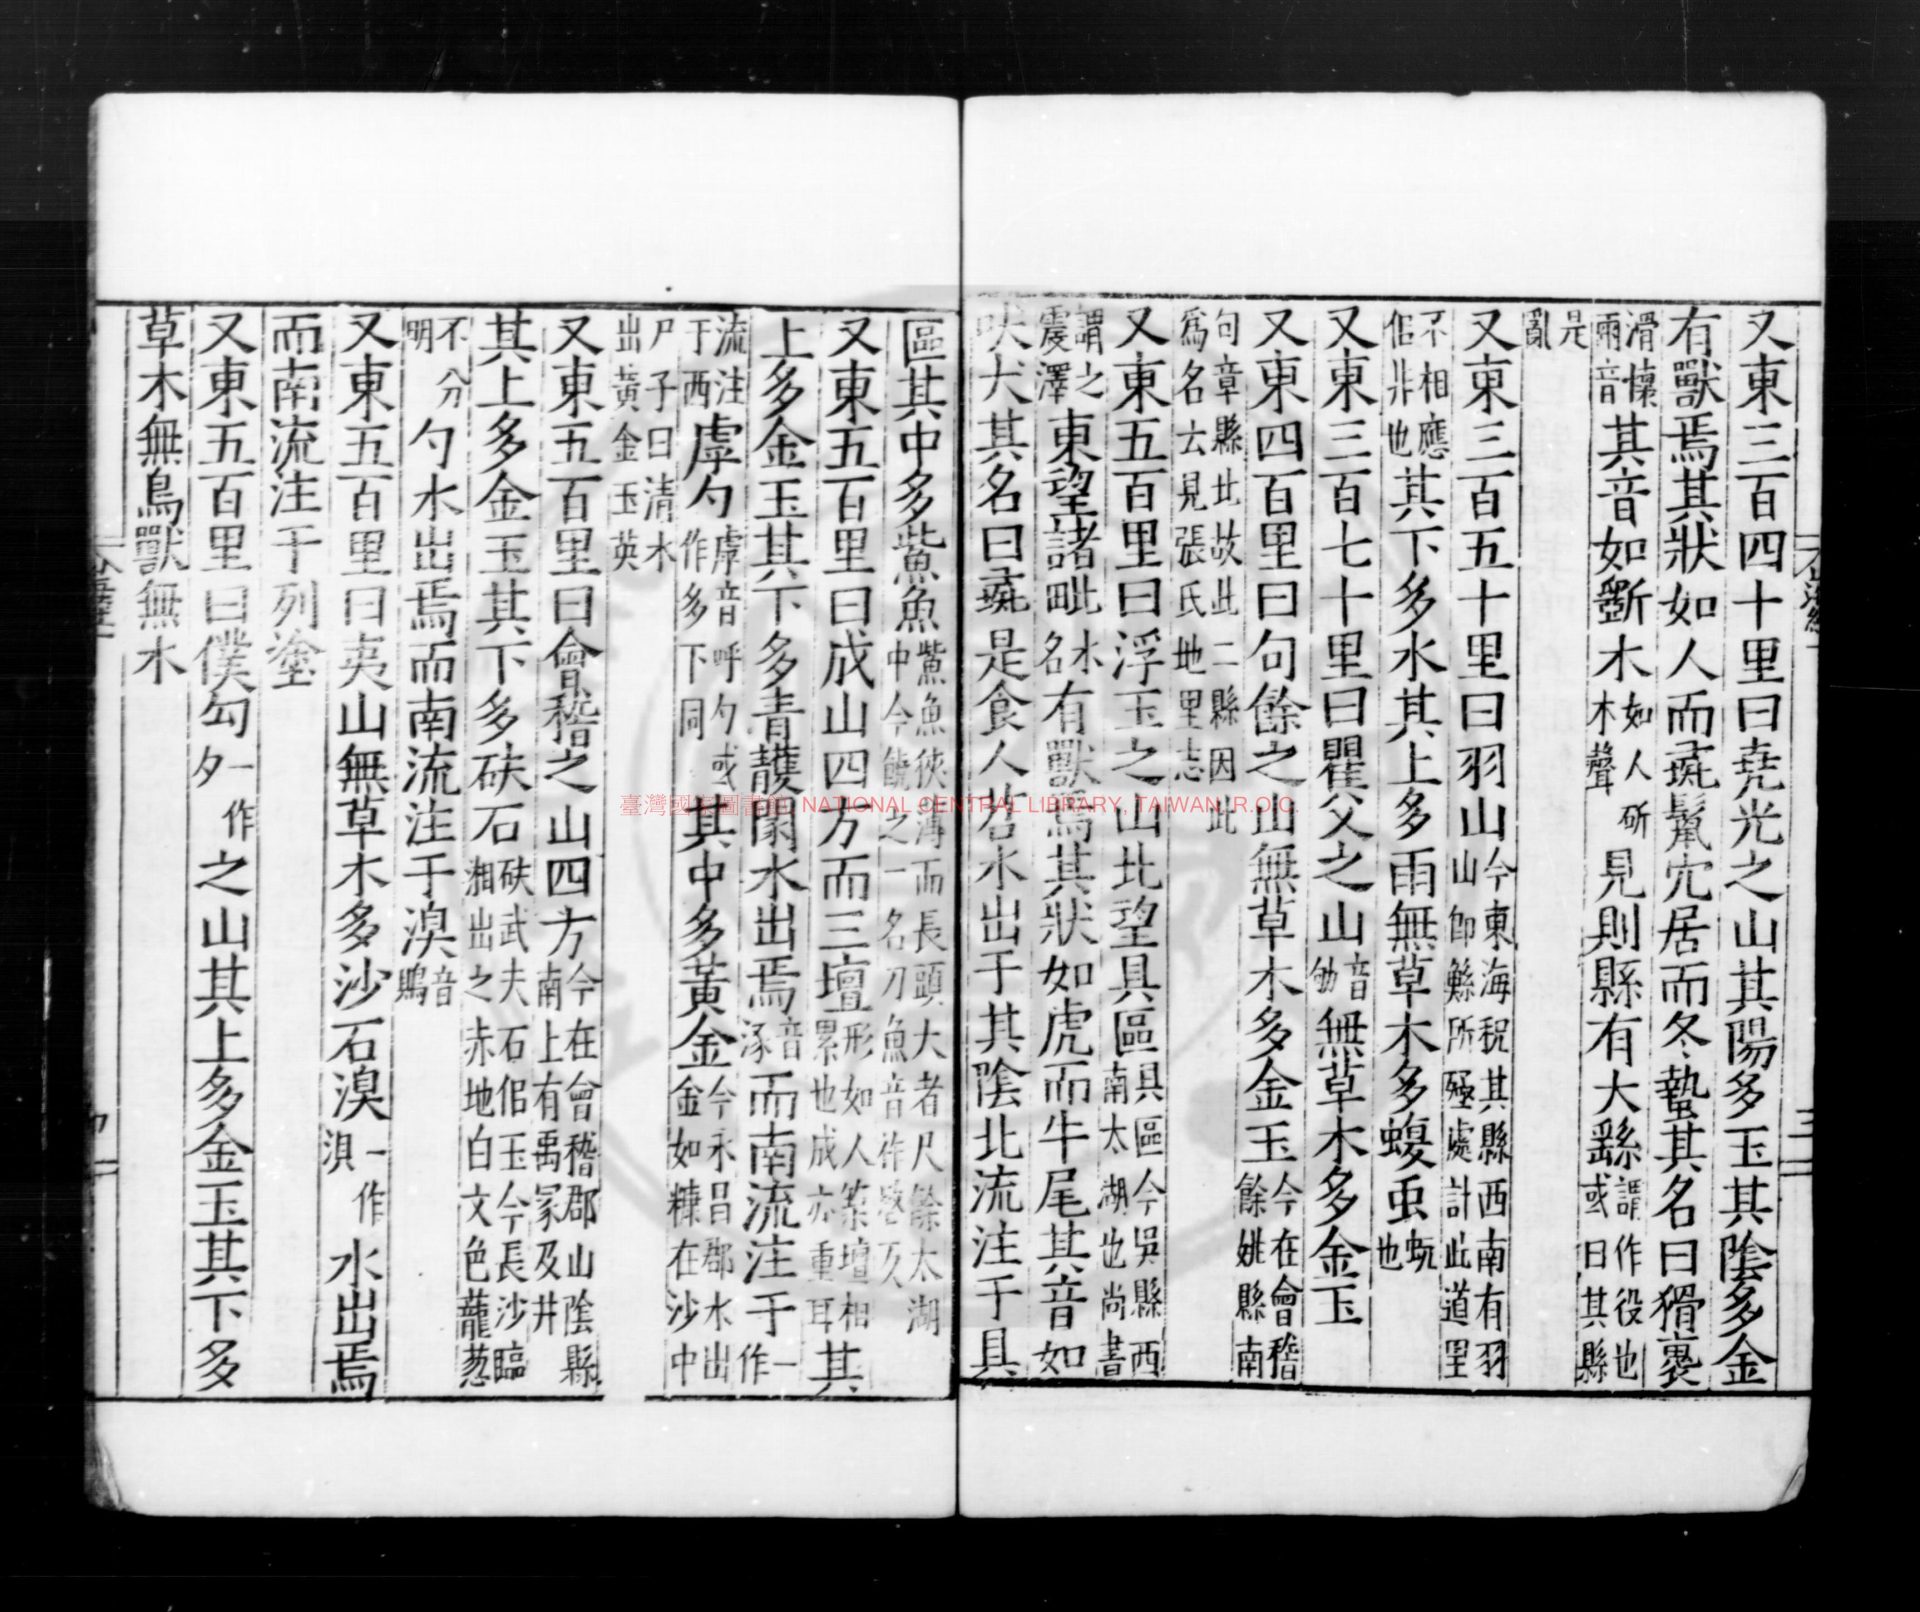 又東三百四十里曰堯光之山其陽多玉其陰多金
有獸焉其狀如人而彘鬣穴居而冬蟄其名曰猾褢
滑懷兩音其音如斲木如人斫木聲見則縣有大繇謂作役也或曰其縣
是亂
又東三百五十里曰羽山今東海祝其縣西南有羽山卽鯀所殛處計此道里
不相應佀非也其下多水其上多雨無草木多蝮虫蚖也
又東三百七十里曰瞿父之山音劬無草木多金玉
又東四百里曰句餘之山無草木多金玉今在會稽餘姚縣南
句章縣北故此二縣因此爲名云見張氏地里志
又東五百里曰浮玉之山北望具區具區今吳縣西南太湖也尚書
謂之震澤東望諸毗水名有獸焉其狀如虎而牛尾其音如
吠犬其名曰彘是食人苕水出于其陰北流注于具
區其中多鮆魚鮆魚狹薄而長頭大者尺餘太湖中今饒之一名刀魚音祚啓反
又東五百里曰成山四方而三壇形如人築壇相累也成亦重耳其
上多金玉其下多青雘閡水出焉音涿而南流注于一作
流注于西虖勺虖音呼勺或作多下同其中多黃金今永昌郡水出金如糠在沙中
尸子曰清水出黃金玉英
又東五百里曰會稽之山四方今在會稽郡山陰縣南上有禹冢及井
其上多金玉其下多砆石砆武夫石佀玉今長沙臨湘出之赤地白文色蘢葱
不分明勺水出焉而南流注于湨音鵙
又東五百里曰夷山無草木多沙石湨一作浿水出焉
而南流注于列塗
又東五百里曰僕勾一作夕之山其上多金玉其下多
草木無鳥獸無水